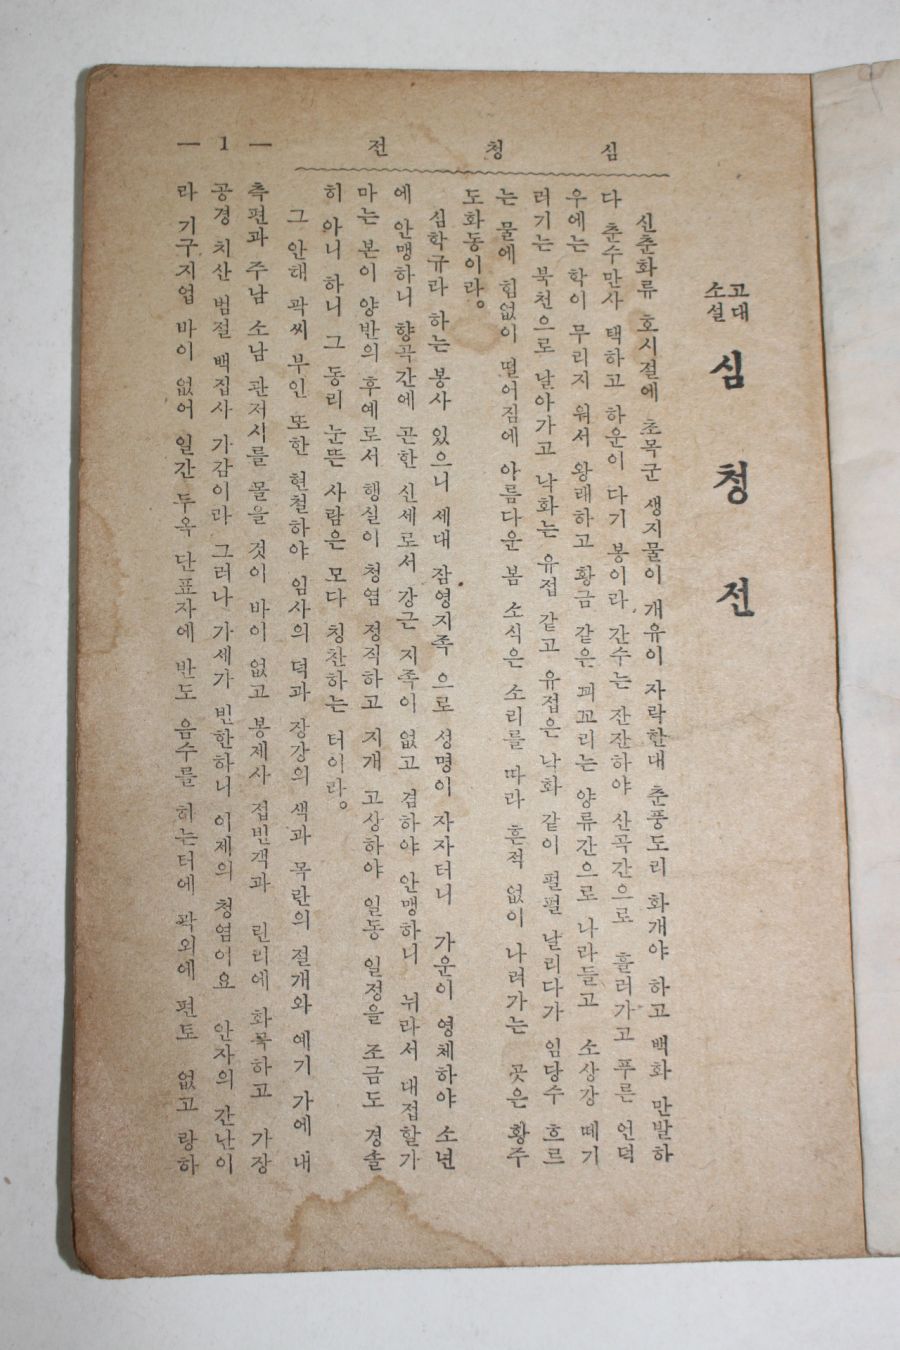 고대
소설
심청전
심청전
— 1 —
신춘화류 호시절에 초목군 생지물이 개유이 자락한대 춘풍도리 화개야 하고 백화 만발하
다 춘수만사 택하고 하운이 다기 봉이라 간수는 잔잔하야 산곡간으로 흘러가고 푸른 언덕
우에는 학이 무리지 워서 왕래하고 황금 같은 꾀꼬리는 양류간으로 나라들고 소상강 떼기
러기는 북천으로 날아가고 낙화는 유접 같고 유접은 낙화 같이 펄펄 날리다가 임당수 흐르
는 물에 힘없이 떨어짐에 아름다운 봄 소식은 소리를 따라 흔적 없이 나려가는 곳은 황주
도화동이라。
심학규라 하는 봉사 있으니 세대 잠영지족 으로 성명이 자자터니 가운이 영체하야 소년
에 안맹하니 향곡간에 곤한 신세로서 강근 지족이 없고 겸하야 안맹하니 뉘라서 대접할가
마는 본이 양반의 후예로서 행실이 청염 정직하고 지개 고상하야 일동 일정을 조금도 경솔
히 아니 하니 그 동리 눈뜬 사람은 모다 칭찬하는 터이라。
그 안해 곽씨 부인 또한 현철하야 임사의 덕과 장강의 색과 목란의 절개와 예기 가에 내
측편과 주남 소남 관저시를 몰을 것이 바이 없고 봉제사 접빈객과 린리에 화목하고 가장
공경 치산 범절 백집사 가감이라 그러나 가세가 빈한하니 이제의 청염이요 안자의 간난이
라 기구지업 바이 없어 일간 두옥 단표자에 반도 음수를 하는터에 곽외에 편토 없고 랑하